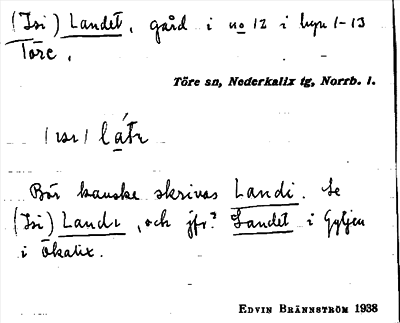 (Isi) Landet, gård i no 12 i byn 1-13
Töre.
Töre sn, Nederkalix tg, Norrb. l.
Bör kanske skrivas Landi. Se
(Isi) Landi, och jfr? Landet i Gyljen
i Ökalix.
EDVIN BRÄNNSTRÖM 1938